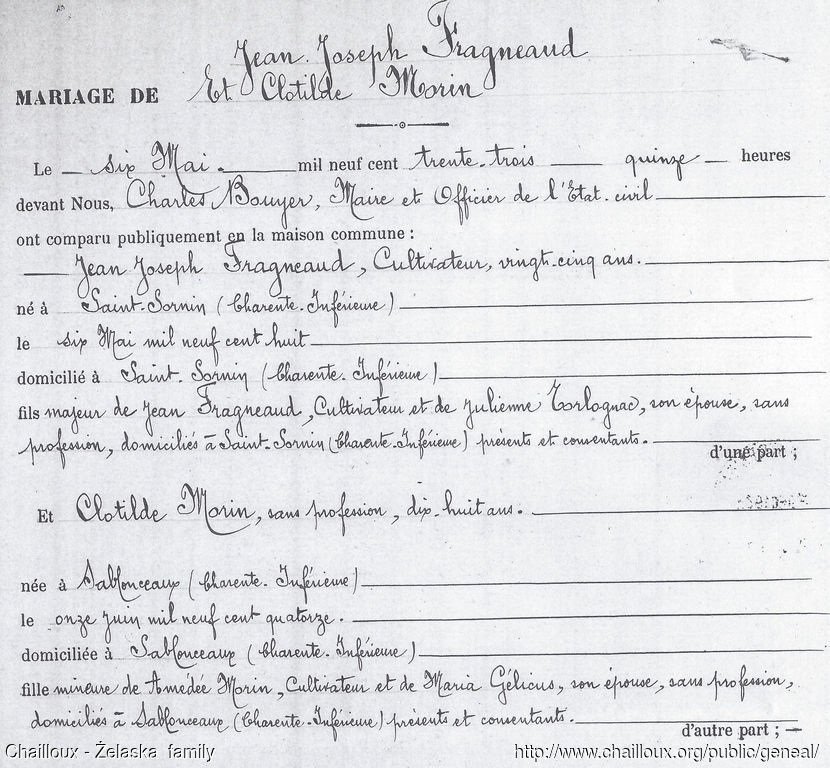 Jean Joseph Fragneaud
MARIAGE DE Et Clotilde Morin
Le six Mai mil neuf cent trente-trois quinze heures
devant Nous, Charles Bouyer, Maire et Officier de l'Etat-civil
ont comparu publiquement en la maison commune :
Jean Joseph Fragneaud, Cultivateur, vingt-cinq ans.
né à Saint-Sornin (Charente-Inférieure)
le six Mai mil neuf cent huit
domicilié à Saint-Sornin (Charente-Inférieure)
fils majeur de Jean Fragneaud, Cultivateur et de Julienne Torlognac, son épouse, sans
profession, domiciliés à Saint-Sornin (Charente-Inférieure) présents et consentants.
d'une part ;
Et Clotilde Morin, sans profession, dix-huit ans.
née à Sablonceaux (Charente-Inférieure)
le onze juin mil neuf cent quatorze.
domiciliée à Sablonceaux (Charente-Inférieure)
fille mineure de Amédée Morin, Cultivateur et de Maria Gélicus, son épouse, sans profession,
domiciliés à Sablonceaux (Charente-Inférieure) présents et consentants.
d'autre part ; —
Chailloux - Želaska family http://www.chailloux.org/public/geneal/